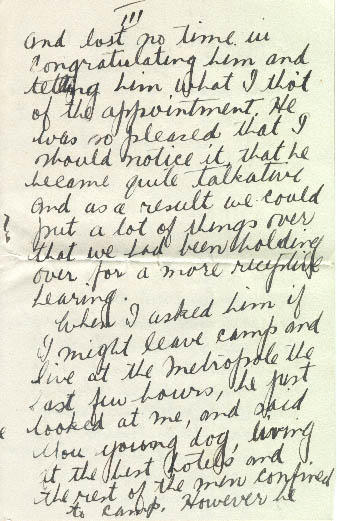 III
and lost no time in
congratulating him and
telling him what I tho't
of the appointment. He
was so pleased that I
should notice it, that he
became quite talkative
and as a result we could
put a lot of things over
that we had been holding
over for a more receptive
hearing.
When I asked him if
I might leave camp and
live at the Metropole the
last few hours, he just
looked at me, and said
You young dog, living
at the best hotels and
the rest of the men confined
to camp. However he